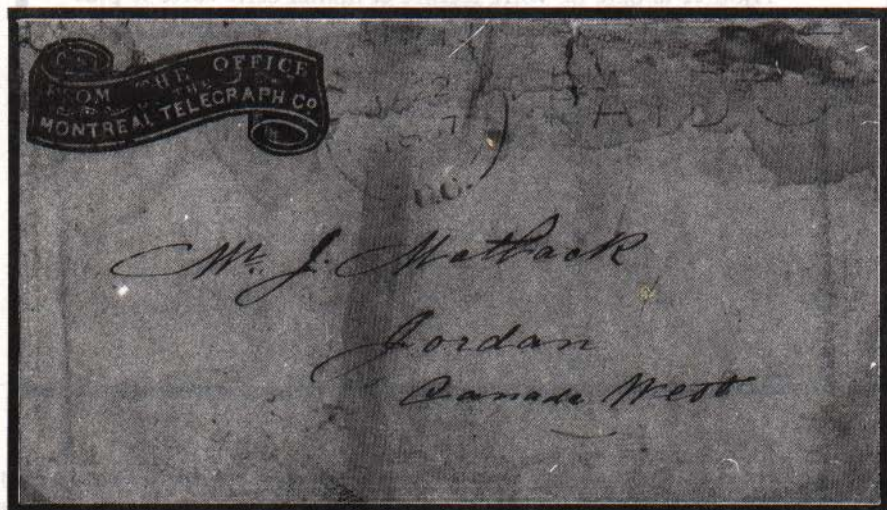 FROM THE OFFICE
MONTREAL TELEGRAPH Co
PAID
C.C.
Mr. J. Matlack
Jordan
Canada West